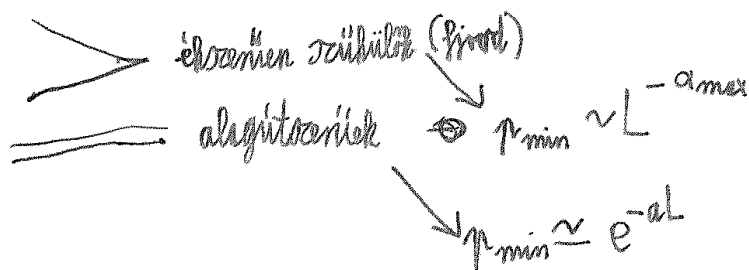 ékszerűen szűkülők (fjord)
alagútszerűek p_min ~ L^-α_max
p_min ≃ e^-aL